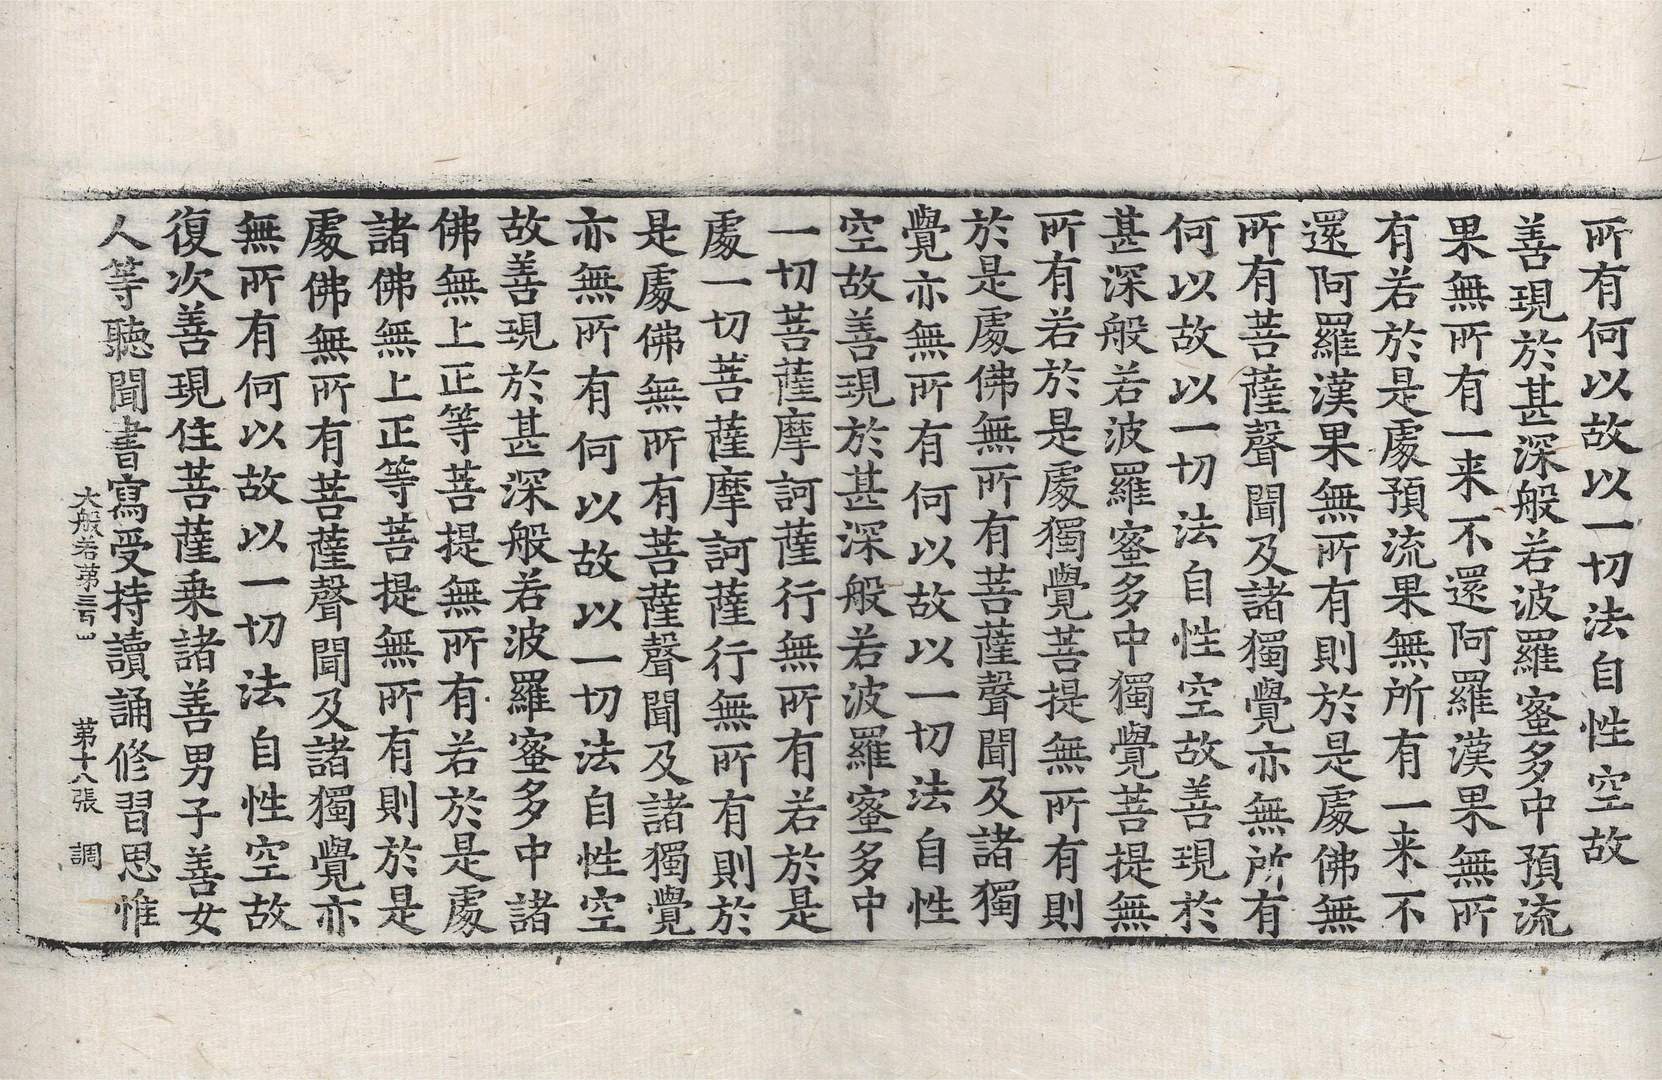 所有何以故以一切法自性空故
善現於甚深般若波羅蜜多中預流
果無所有一来不還阿羅漢果無所
有若於是處預流果無所有一来不
還阿羅漢果無所有則於是處佛無
所有菩薩聲聞及諸獨覺亦無所有
何以故以一切法自性空故善現於
甚深般若波羅蜜多中獨覺菩提無
所有若於是處獨覺菩提無所有則
於是處佛無所有菩薩聲聞及諸獨
覺亦無所有何以故以一切法自性
空故善現於甚深般若波羅蜜多中
一切菩薩摩訶薩行無所有若於是
處一切菩薩摩訶薩行無所有則於
是處佛無所有菩薩聲聞及諸獨覺
亦無所有何以故以一切法自性空
故善現於甚深般若波羅蜜多中諸
佛無上正等菩提無所有若於是處
諸佛無上正等菩提無所有則於是
處佛無所有菩薩聲聞及諸獨覺亦
無所有何以故以一切法自性空故
復次善現住菩薩乗諸善男子善女
人等聽聞書寫受持讀誦修習思惟
大般若第三百四 第十八張 調